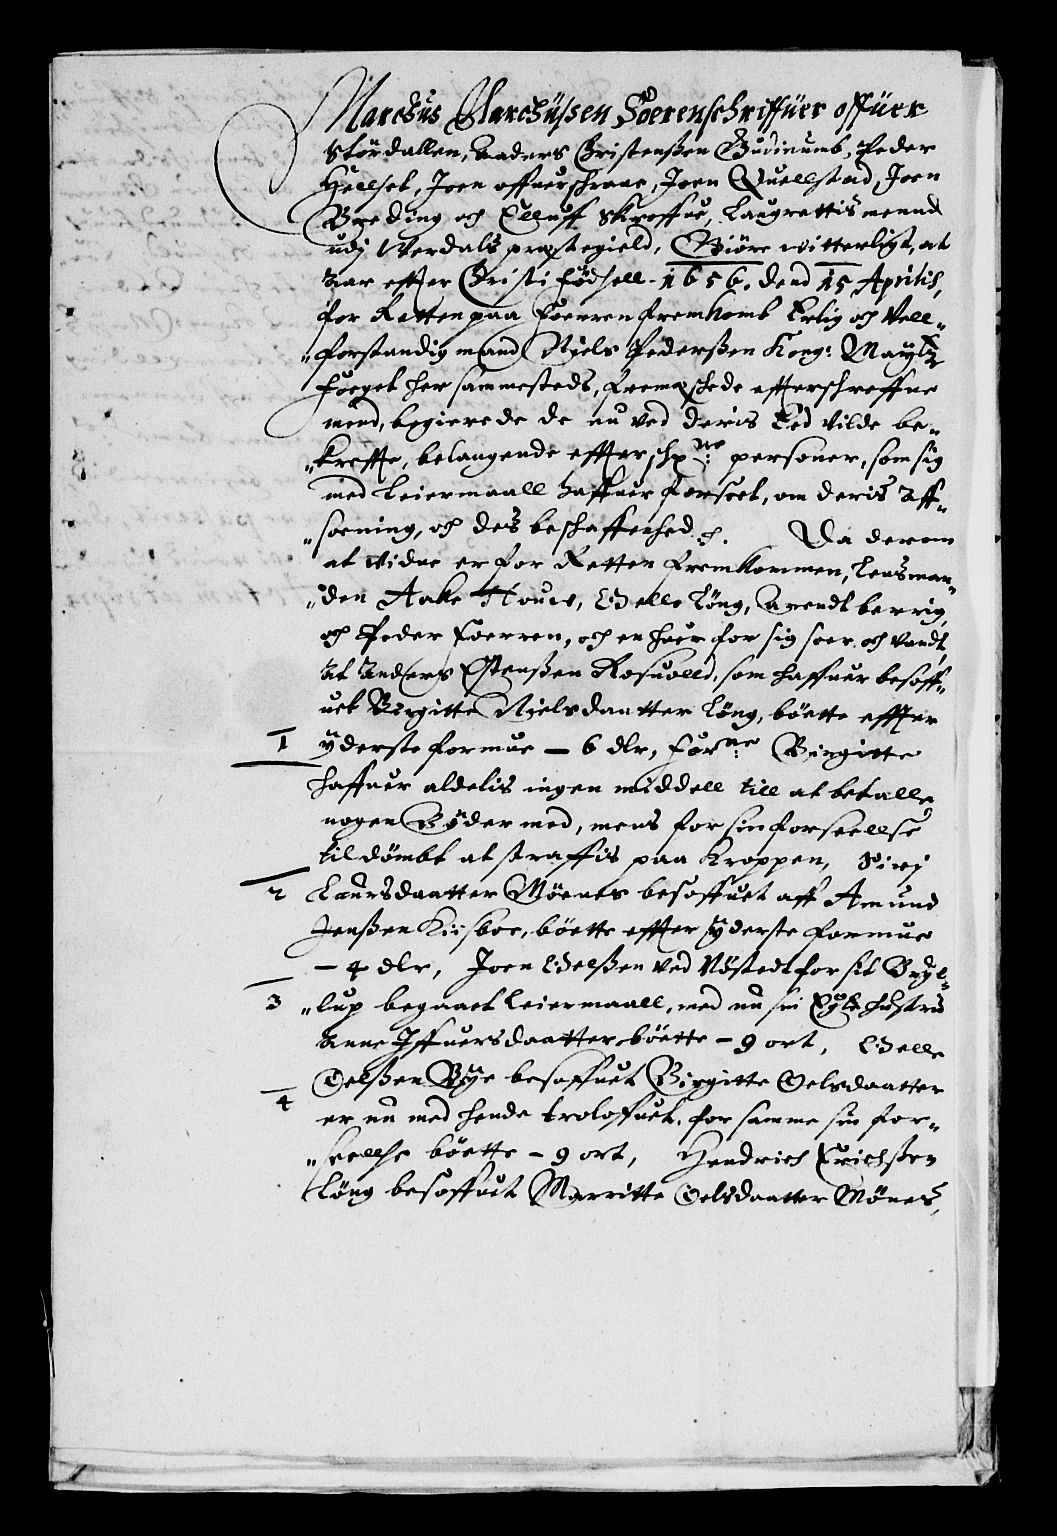 Marchus Marchüssen Soerenschriffüer offüer
Stördallen, Anders Christenßen Gudmumb, Peder
Hellset, Joen offuerschrane, Joen Quellstad, Joen
Breding och Elluff Skroffue, Laugrettis mennd
udj Werdals præstegield, Giöre witterligt, at
Aar effter Christi Födsell. 1656. dend 15 Aprilis,
for Retten paa Foerren fremkomb Erlig och Well„
„forstandig mand Njels Pederßen Kong: Maytz
Foeget her sammesteds, Fremæschede effterschreffne
mend, begierede de nu ved deris Eed vilde be„
„kreffte, belangende effterschr:ne personer, som sig
med Leiermaall haffuer forseet, om deris Aff„
„soening, och des beschaffenhed etc. Da derom
at vidne er for Retten fremkommen, Lensman„
„den Aake Houe, Oelle Löng, Arendt berrig,
och Peder Foerren, och en huer for sig soer och vandt,
At Anders Ostenßen Rosuolld, som haffuer besoff„
uet Birgitte Njelsdaatter Löng, böette effter
1 yderste formue – 6 dlr, for:ne Birgitte
haffuer aldelis ingen middell till at betalle
nogen Böder med, mens for sin forseellse
til dömbt at straffis paa Kroppen, Sirj
2 Laursdaatter Möenes besoffuet aff Amund
Jenßen Kiisboe, böette effter yderste formue
– 4 dlr, Joen Oelßen ved Nöstedt for sit Bryl„
3 „lup begaaet Leiermaall, med nu sin Echte hustru
Anne Iffuersdaatter böette – 9 ort, Oelle
Oelßen Bye besoffuet Birgitte Oelsdaatter
4 er nu med hende troloffuet, for samme sin for„
„seellse böette – 9 ort, Hendrich Erichßen
Löng besoffuet Marritte Oelsdaatter Mönes,